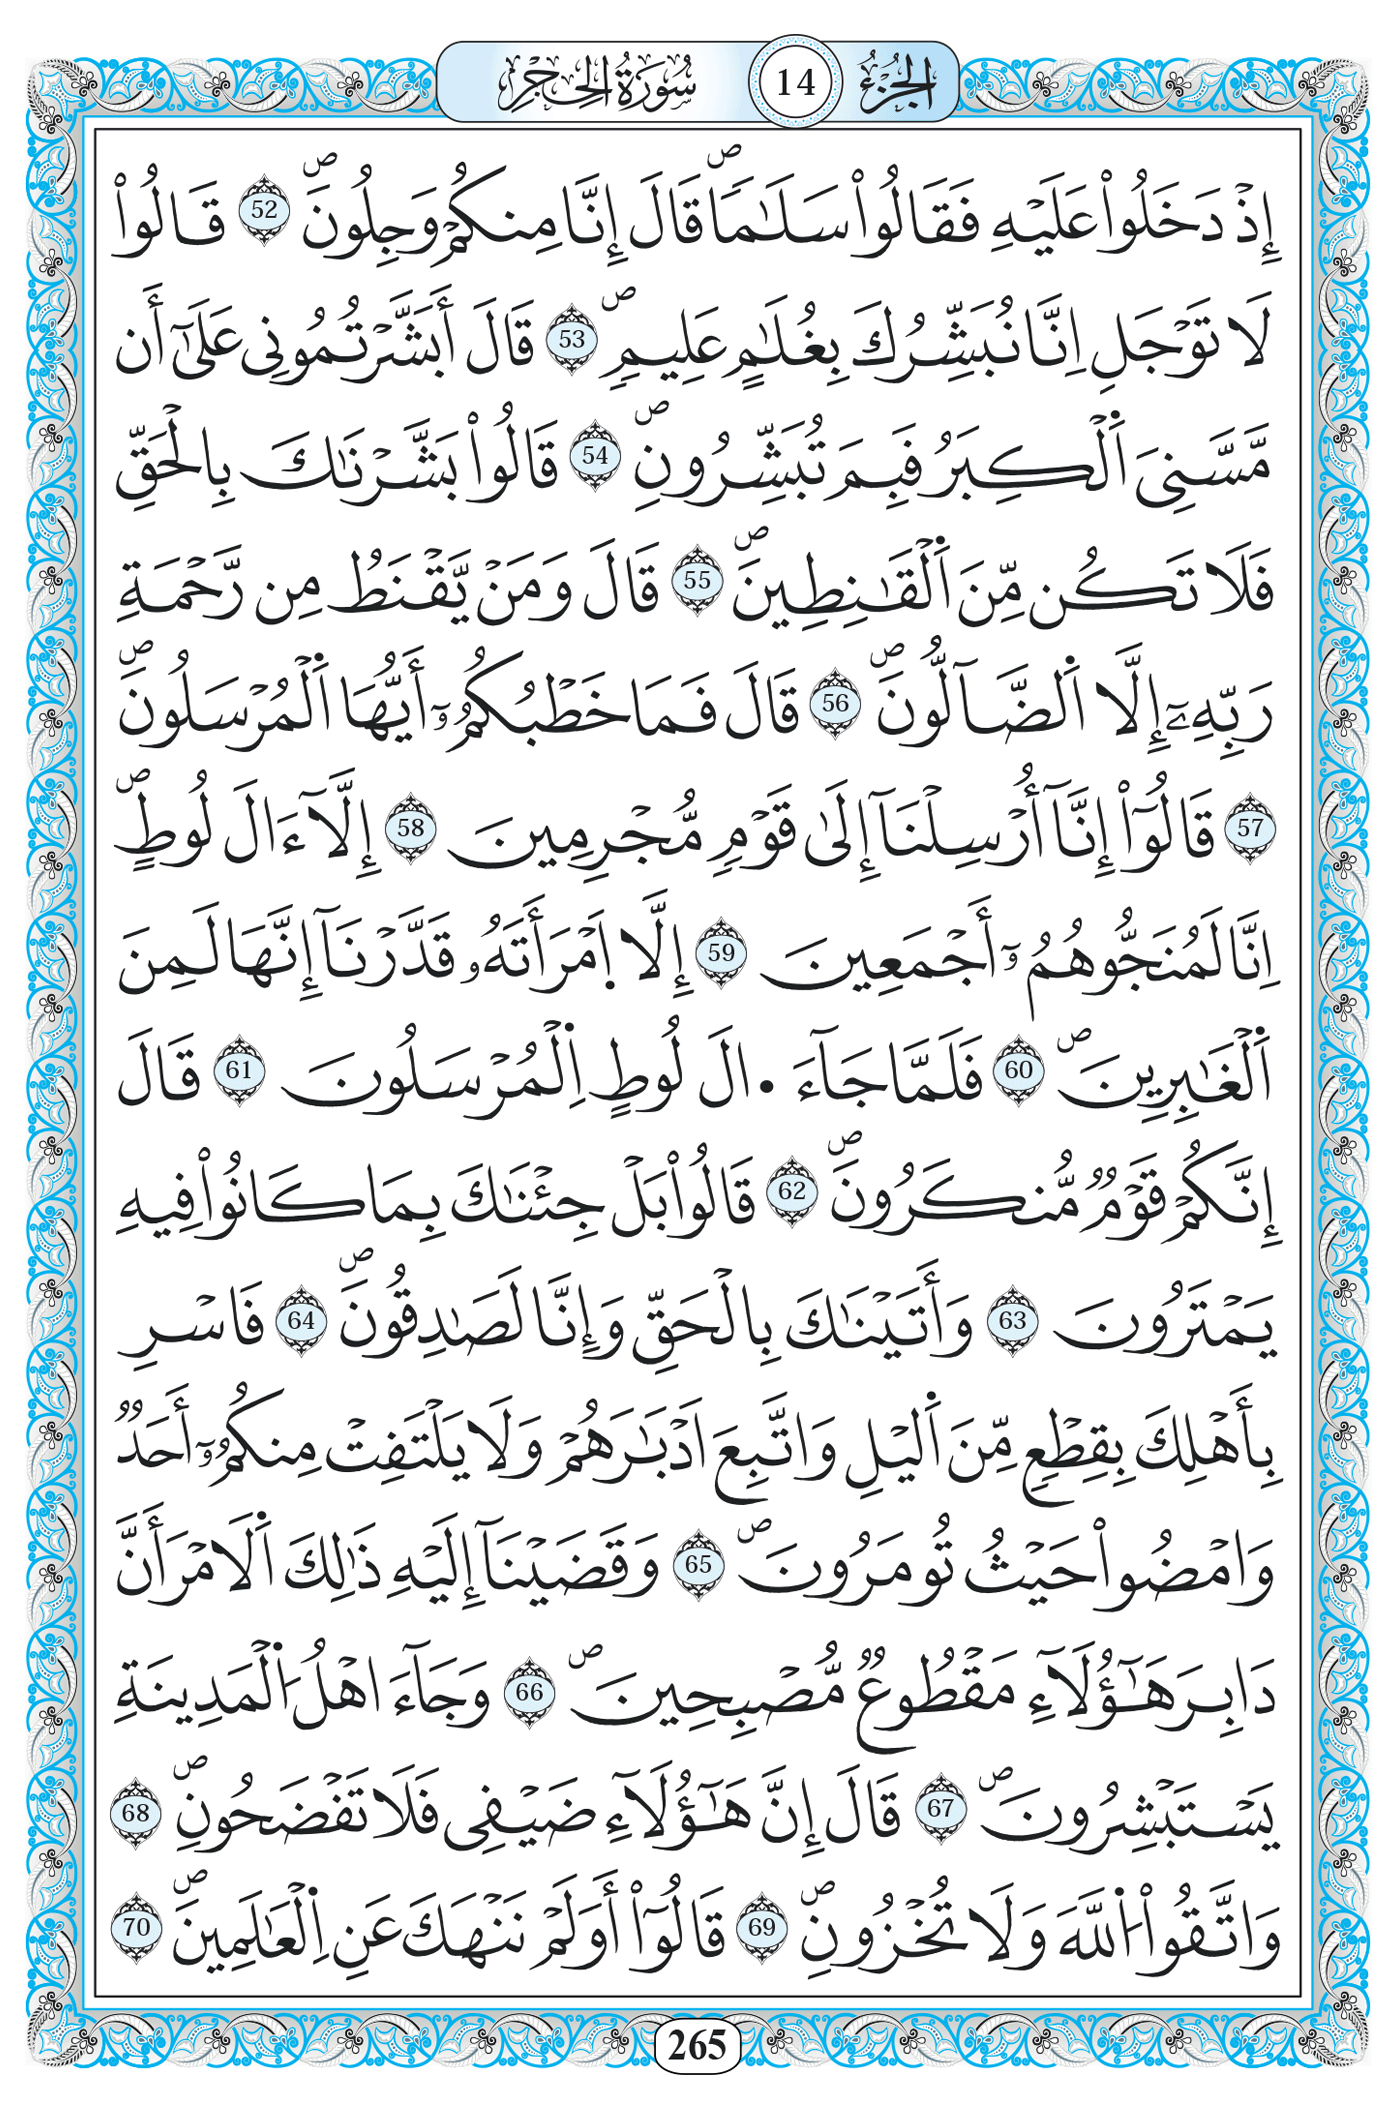 الجُزْءُ 14 سُورَةُ الحِجْرِ
إِذْ دَخَلُواْ عَلَيْهِ فَقَالُواْ سَلَٰماٗۖ قَالَ إِنَّا مِنكُمْ وَجِلُونَۖ 52 قَالُواْ
لَا تَوْجَلِ اِنَّا نُبَشِّرُكَ بِغُلَٰمٍ عَلِيمٖۖ 53 قَالَ أَبَشَّرْتُمُونِي عَلَىٰٓ أَن
مَّسَّنِيَ اَ۬لْكِبَرُ فَبِمَ تُبَشِّرُونِۖ 54 قَالُواْ بَشَّرْنَٰكَ بِالْحَقِّ
فَلَا تَكُن مِّنَ اَ۬لْقَٰنِطِينَۖ 55 قَالَ وَمَنْ يَّقْنَطُ مِن رَّحْمَةِ
رَبِّهِۦٓ إِلَّا اَ۬لضَّآلُّونَۖ 56 قَالَ فَمَا خَطْبُكُمُۥٓ أَيُّهَا اَ۬لْمُرْسَلُونَۖ
57 قَالُوٓاْ إِنَّآ أُرْسِلْنَآ إِلَىٰ قَوْمٖ مُّجْرِمِينَ 58 إِلَّآ ءَالَ لُوطٍۖ
اِنَّا لَمُنَجُّوهُمُۥٓ أَجْمَعِينَ 59 إِلَّا اَ۪مْرَأَتَهُۥ قَدَّرْنَآ إِنَّهَا لَمِنَ
اَ۬لْغَٰبِرِينَۖ 60 فَلَمَّا جَآءَ ا۬لَ لُوطٍ اِ۬لْمُرْسَلُونَ 61 قَالَ
إِنَّكُمْ قَوْمٞ مُّنكَرُونَۖ 62 قَالُواْ بَلْ جِئْنَٰكَ بِمَا كَانُواْ فِيهِ
يَمْتَرُونَ 63 وَأَتَيْنَٰكَ بِالْحَقِّ وَإِنَّا لَصَٰدِقُونَۖ 64 فَاسْرِ
بِأَهْلِكَ بِقِطْعٖ مِّنَ اَ۬ليْلِ وَاتَّبِعَ اَدْبَٰرَهُمْ وَلَا يَلْتَفِتْ مِنكُمُۥٓ أَحَدٞ
وَامْضُواْ حَيْثُ تُومَرُونَۖ 65 وَقَضَيْنَآ إِلَيْهِ ذَٰلِكَ اَ۬لَامْرَ أَنَّ
دَابِرَ هَٰٓؤُلَآءِ مَقْطُوعٞ مُّصْبِحِينَۖ 66 وَجَآءَ اهْلُ اُ۬لْمَدِينَةِ
يَسْتَبْشِرُونَۖ 67 قَالَ إِنَّ هَٰٓؤُلَآءِ ضَيْفِي فَلَا تَفْضَحُونِۖ 68
وَاتَّقُواْ اُ۬للَّهَ وَلَا تُخْزُونِۖ 69 قَالُوٓاْ أَوَلَمْ نَنْهَكَ عَنِ اِ۬لْعَٰلَمِينَۖ 70
265